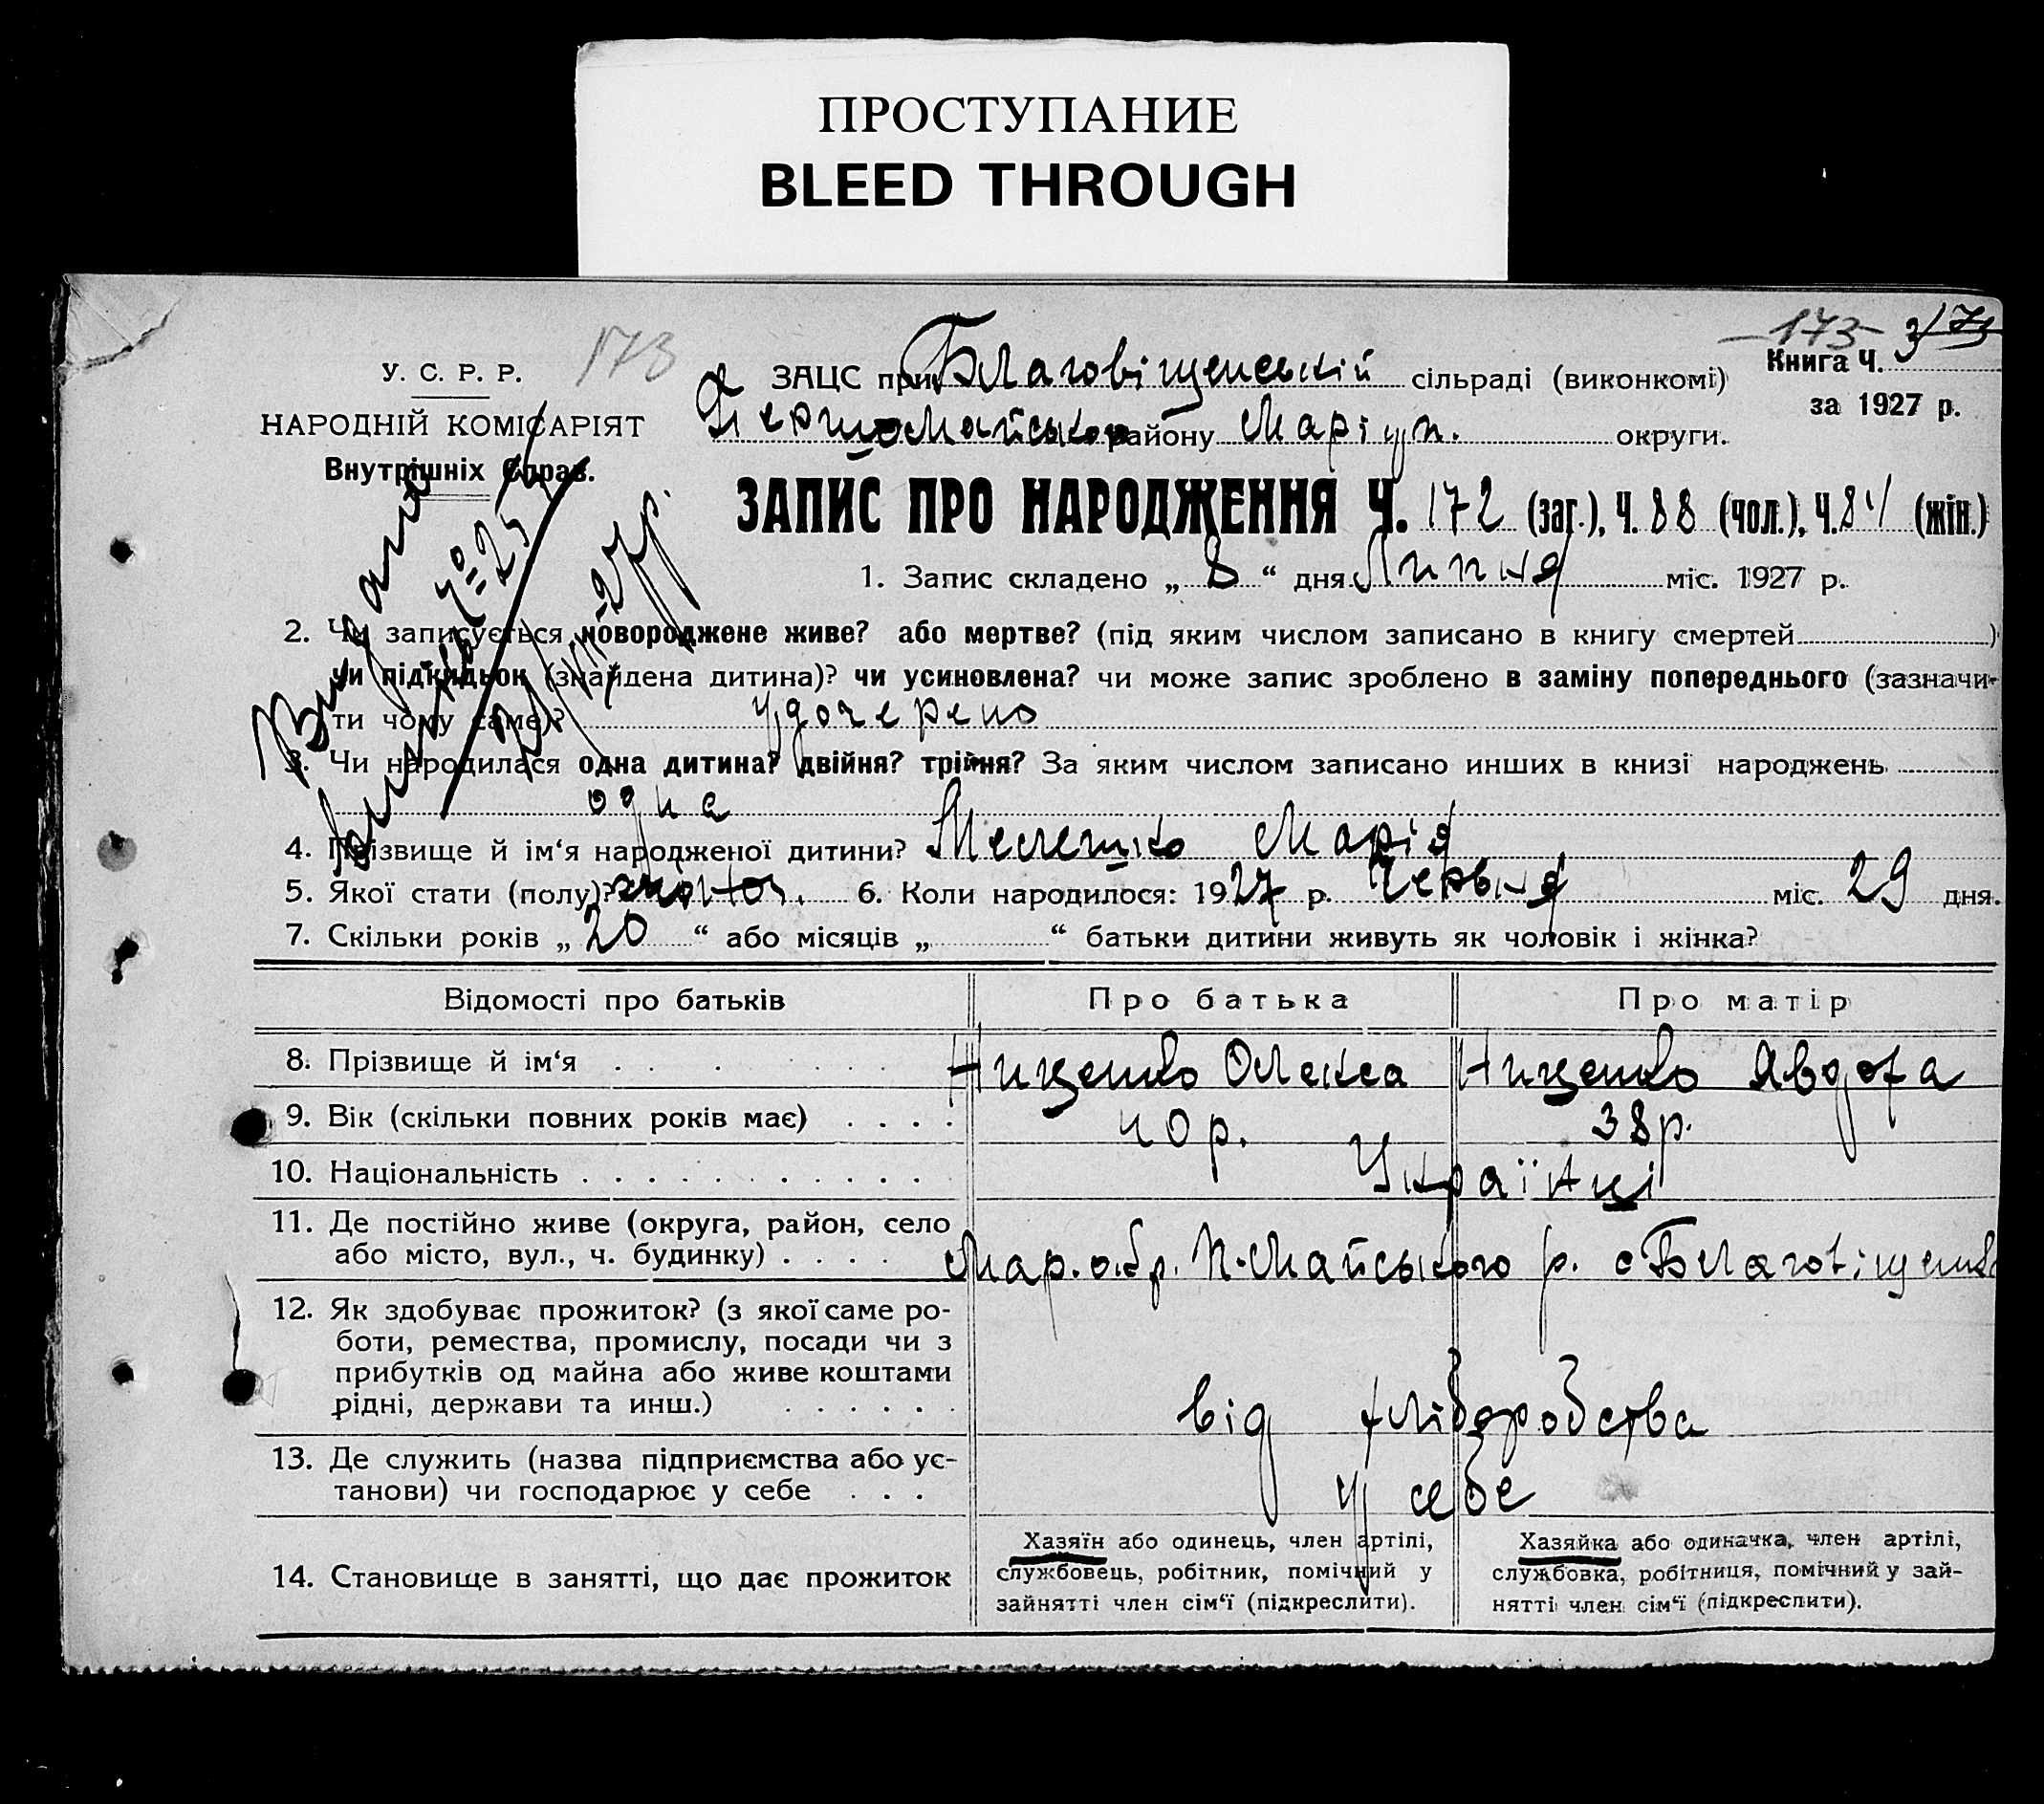 ПРОСТУПАНИЕ
BLEED THROUGH
173
-173- 3/73
У. С. Р. Р.
НАРОДНІЙ КОМІСАРІЯТ
Внутрішніх Справ.
ЗАЦС при Благовіщенській сільраді (виконкомі)
Першомайського району Маріуп. округи.
Книга Ч. 3
за 1927 р.
ЗАПИС ПРО НАРОДЖЕННЯ Ч. 172 (заг.), Ч. 88 (чол.), Ч. 84 (жін.)
Видано
1. Запис складено „ 8 “ дня Липня міс. 1927 р.
2. Чи записується новороджене живе? або мертве? (під яким числом записано в книгу смертей )
чи підкидьок (знайдена дитина)? чи усиновлена? чи може запис зроблено в заміну попереднього (зазначи-
ти чому саме)? Удочерено
3. Чи народилася одна дитина? двійня? трійня? За яким числом записано инших в книзі народжень
одна
4. Прізвище й ім‘я народженої дитини? Мелешко Марія
5. Якої стати (полу)? жіноч. 6. Коли народилося: 1927 р. Червня міс. 29 дня.
7. Скільки років „ 20 “ або місяців „ “ батьки дитини живуть як чоловік і жінка?
Відомості про батьків Про батька Про матір
8. Прізвище й ім‘я Нищенко Олекса Нищенко Явдоха
9. Вік (скільки повних років має) 40 р. 38 р.
10. Національність Українці
11. Де постійно живе (округа, район, село
або місто, вул., ч. будинку) Мар. окр. П-Майського р. с Благовіщенка
12. Як здобуває прожиток? (з якої саме ро-
боти, ремества, промислу, посади чи з
прибутків од майна або живе коштами
рідні, держави та инш.) від хліборобства
13. Де служить (назва підприємства або ус-
танови) чи господарює у себе У себе
14. Становище в занятті, що дає прожиток
Хазяїн або одинець, член артілі,
службовець, робітник, помічний у
зайнятті член сім‘ї (підкреслити).
Хазяйка або одиначка, член артілі,
службовка, робітниця, помічний у зай-
нятті член сім‘ї (підкреслити).